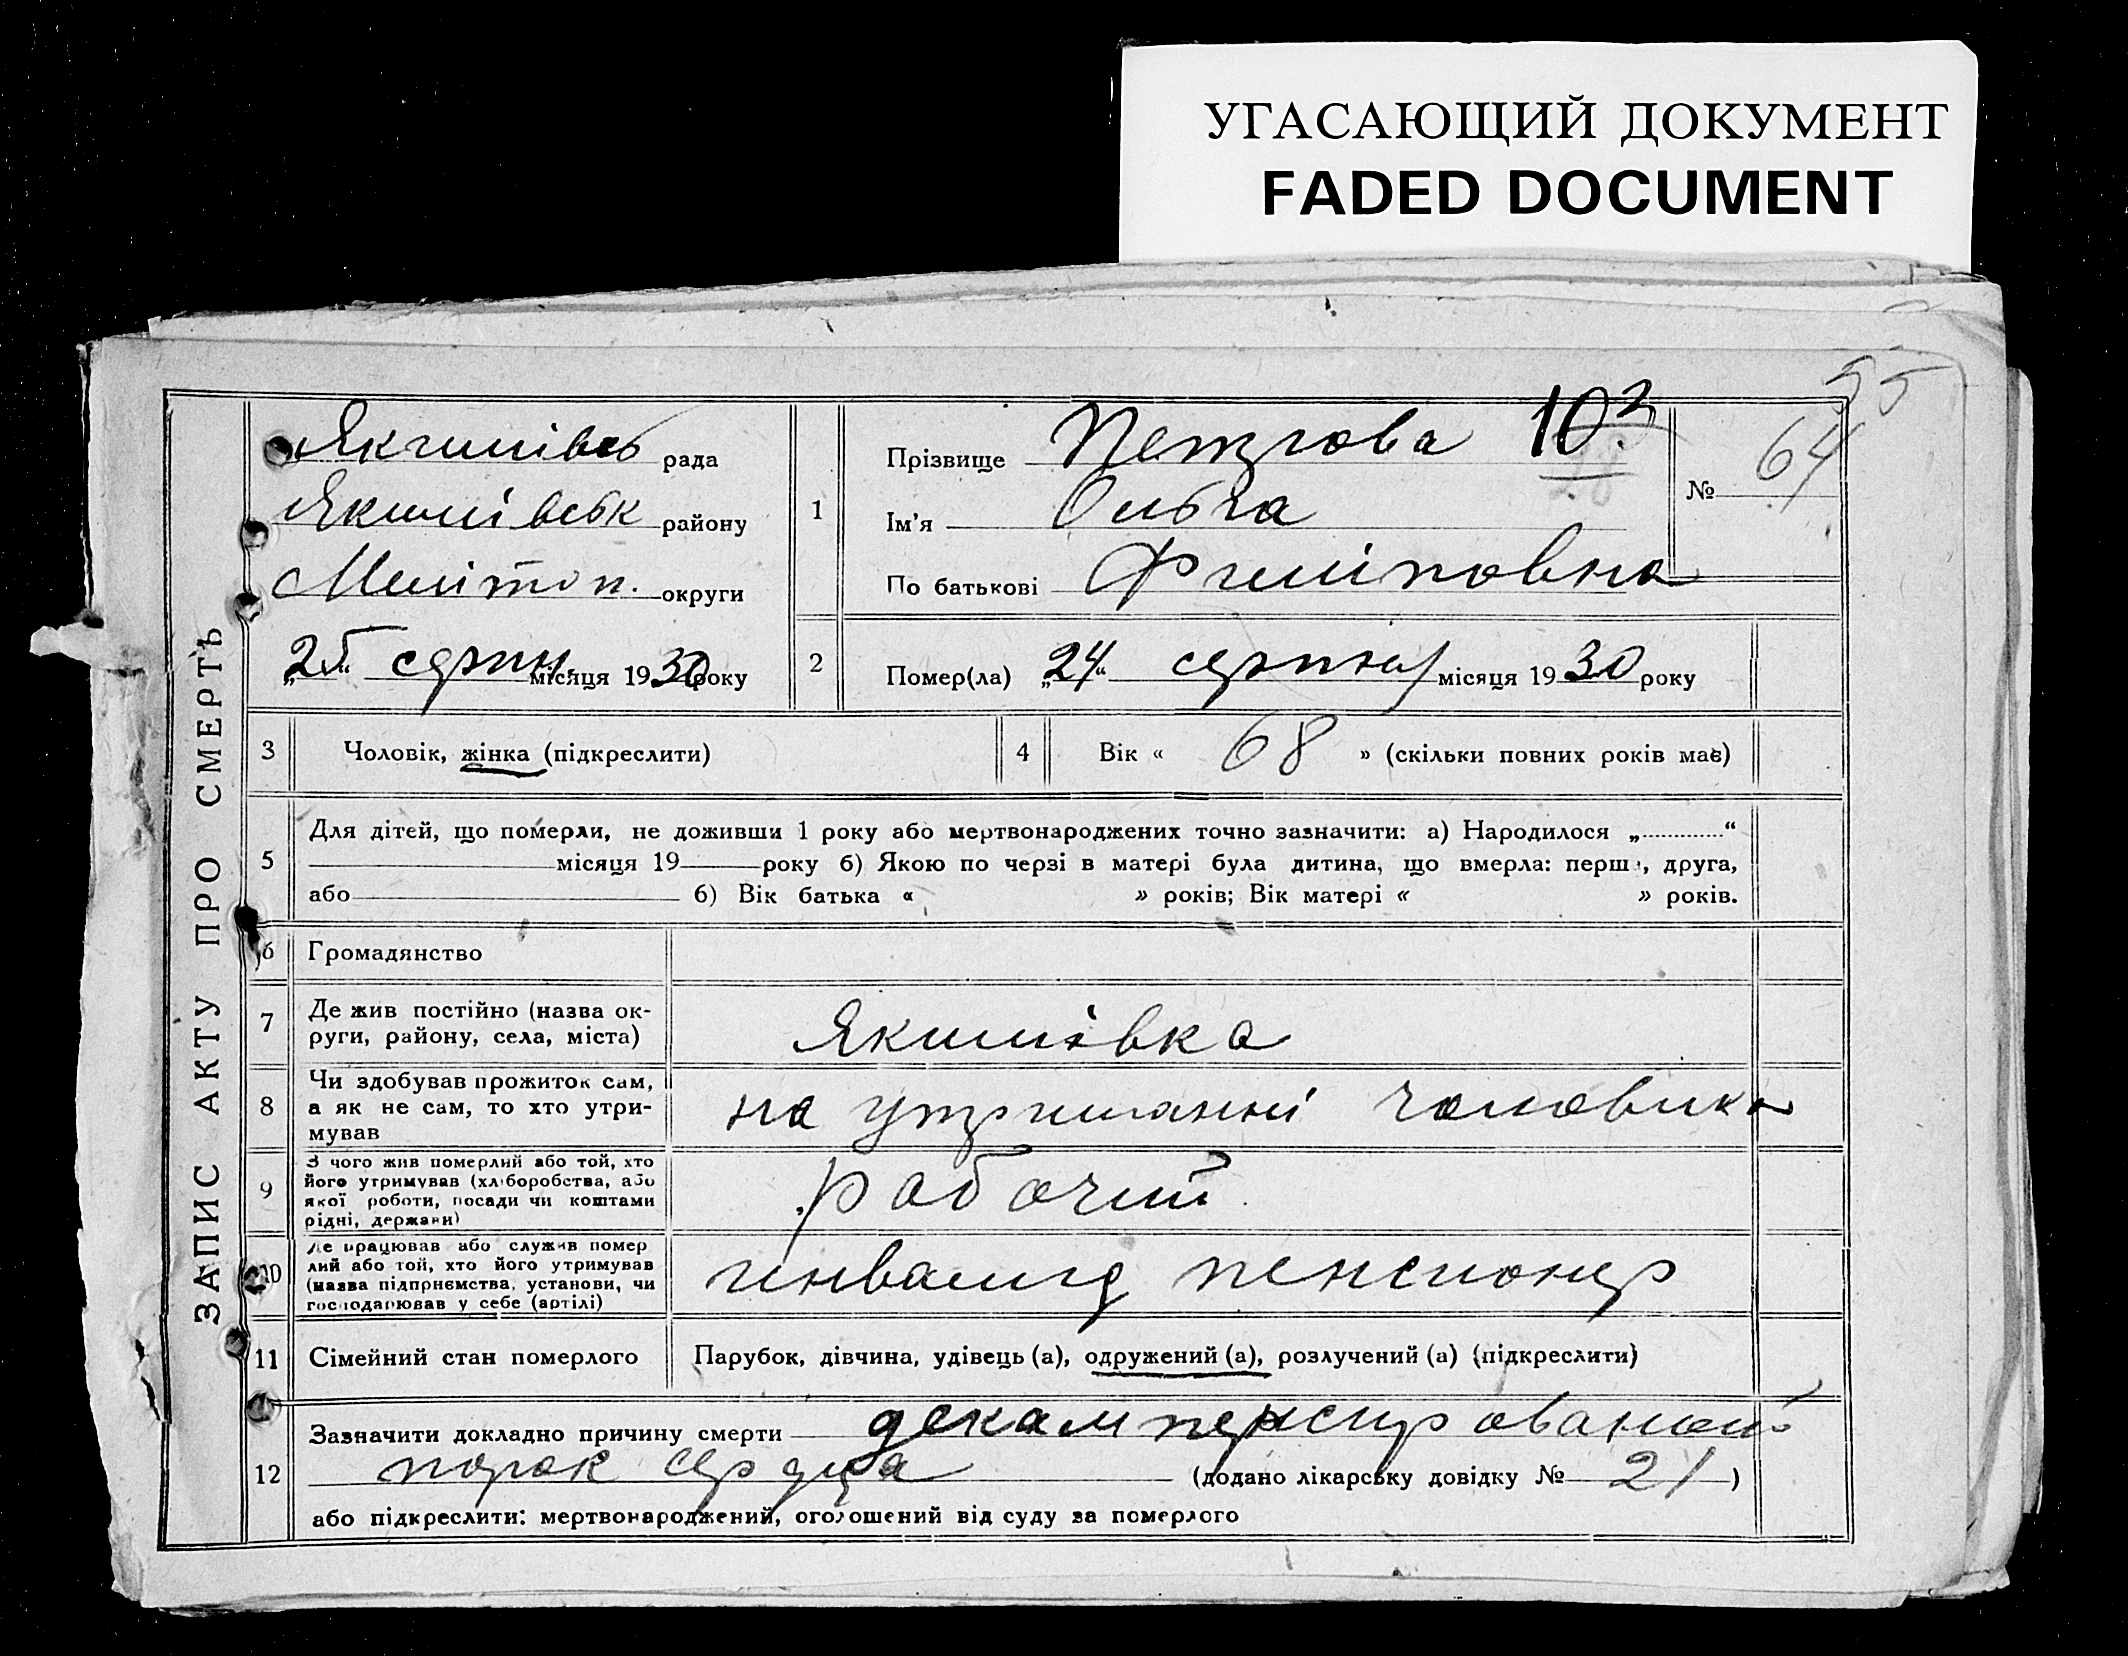 УГАСАЮЩИЙ ДОКУМЕНТ
FADED DOCUMENT
55
ЗАПИС АКТУ ПРО СМЕРТЬ
Якимівсь рада
Якимівськ району
Мелітоп. округи
„25“ серпн. місяця 1930 року
1
Прізвище Петрова 10
№ 64
Ім’я Ольга
По батькові Филіповна
2
Помер(ла) „24“ серпня місяця 1930 року
3 Чоловік, жінка (підкреслити)
4 Вік « 68 » (скільки повних років має)
5
Для дітей, що померли, не доживши 1 року або мертвонароджених точно зазначити: а) Народилося „............“
місяця 19 року б) Якою по черзі в матері була дитина, що вмерла: перша, друга,
або б) Вік батька « » років; Вік матері « » років.
6 Громадянство
7 Де жив постійно (назва ок-
руги, району, села, міста)
Якимівка
8 Чи здобував прожиток сам,
а як не сам, то хто утри-
мував
на утриманні чоловика
9 З чого жив померлий або той, хто
його утримував (хліборобства, або
якої роботи, посади чи коштами
рідні, держави)
рабочий
10 Де працював або служив помер
лий або той, хто його утримував
(назва підприємства, установи, чи
господарював у себе (артілі)
инвалид пенсионер
11 Сімейний стан померлого
Парубок, дівчина, удівець (а), одружений (а), розлучений (а) (підкреслити)
12
Зазначити докладно причину смерти декамперсированый
порок сердца (додано лікарську довідку № 21)
або підкреслити: мертвонароджений, оголошений від суду за померлого